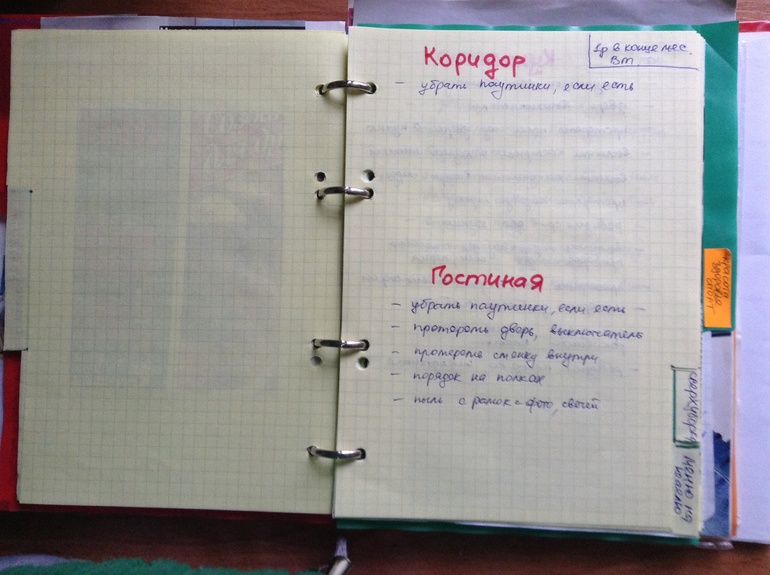 1р в конце мес.
Вт
Коридор
- убрать паутинки, если есть
Гостиная
- убрать паутинки, если есть -
- протереть дверь, выключатель
- протереть стенку внутри
- порядок на полках
- пыль с рамок с фото, свечей
красота
здоровье
спорт
меню на
неделю